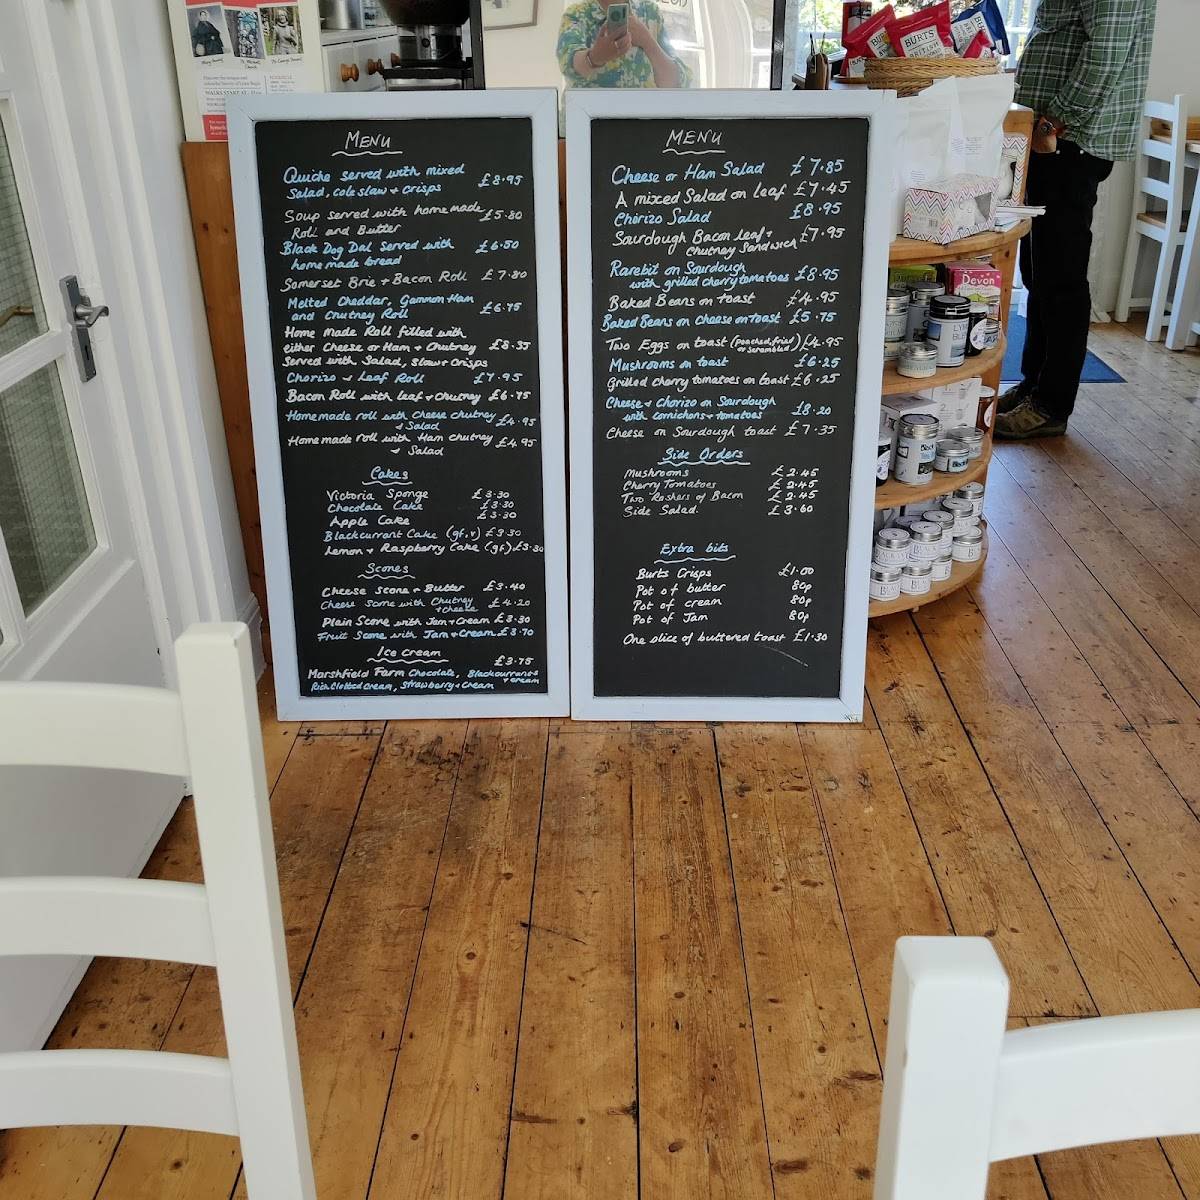 MENU
Quiche served with mixed
Salad, coleslaw + crisps £8.95
Soup served with home made £5.80
Roll and Butter
Black Dog Dal Served with £6.50
home made bread
Somerset Brie + Bacon Roll £7.80
Melted Cheddar, Gammon Ham
and Chutney Roll £6.75
Home Made Roll filled with
either Cheese or Ham + Chutney £8.35
Served with Salad, slaw + crisps
Chorizo + Leaf Roll £7.95
Bacon Roll with leaf + chutney £6.75
Homemade roll with Cheese chutney £4.95
+ Salad
Homemade roll with Ham chutney £4.95
+ Salad
Cakes
Victoria Sponge £3.30
Chocolate Cake £3.30
Apple Cake £3.30
Blackcurrant Cake (gf,v) £3.30
Lemon + Raspberry Cake (gf) £3.30
Scones
Cheese Scone + Butter £3.40
Cheese Scone with Chutney £4.20
+ cheese
Plain Scone with Jam + Cream £3.30
Fruit Scone with Jam + Cream £3.70
Ice cream
£3.75
Marshfield Farm Chocolate, Blackcurrants
+ cream
Rich Clotted cream, Strawberry + Cream
MENU
Cheese or Ham Salad £7.85
A mixed Salad on leaf £7.45
Chorizo Salad £8.95
Sourdough Bacon leaf + £7.95
Chutney Sandwich
Rarebit on Sourdough
with grilled cherry tomatoes £8.95
Baked Beans on toast £4.95
Baked Beans on cheese on toast £5.75
Two Eggs on toast (poached, fried £4.95
or scrambled)
Mushrooms on toast £6.25
Grilled cherry tomatoes on toast £6.25
Cheese + Chorizo on Sourdough
with cornichons + tomatoes £8.20
Cheese on Sourdough toast £7.35
Side Orders
Mushrooms £2.45
Cherry Tomatoes £2.45
Two Rashers of Bacon £2.45
Side Salad £3.60
Extra bits
Burts Crisps £1.00
Pot of butter 80p
Pot of cream 80p
Pot of Jam 80p
One slice of buttered toast £1.30
BURTS
BRITISH
Devon